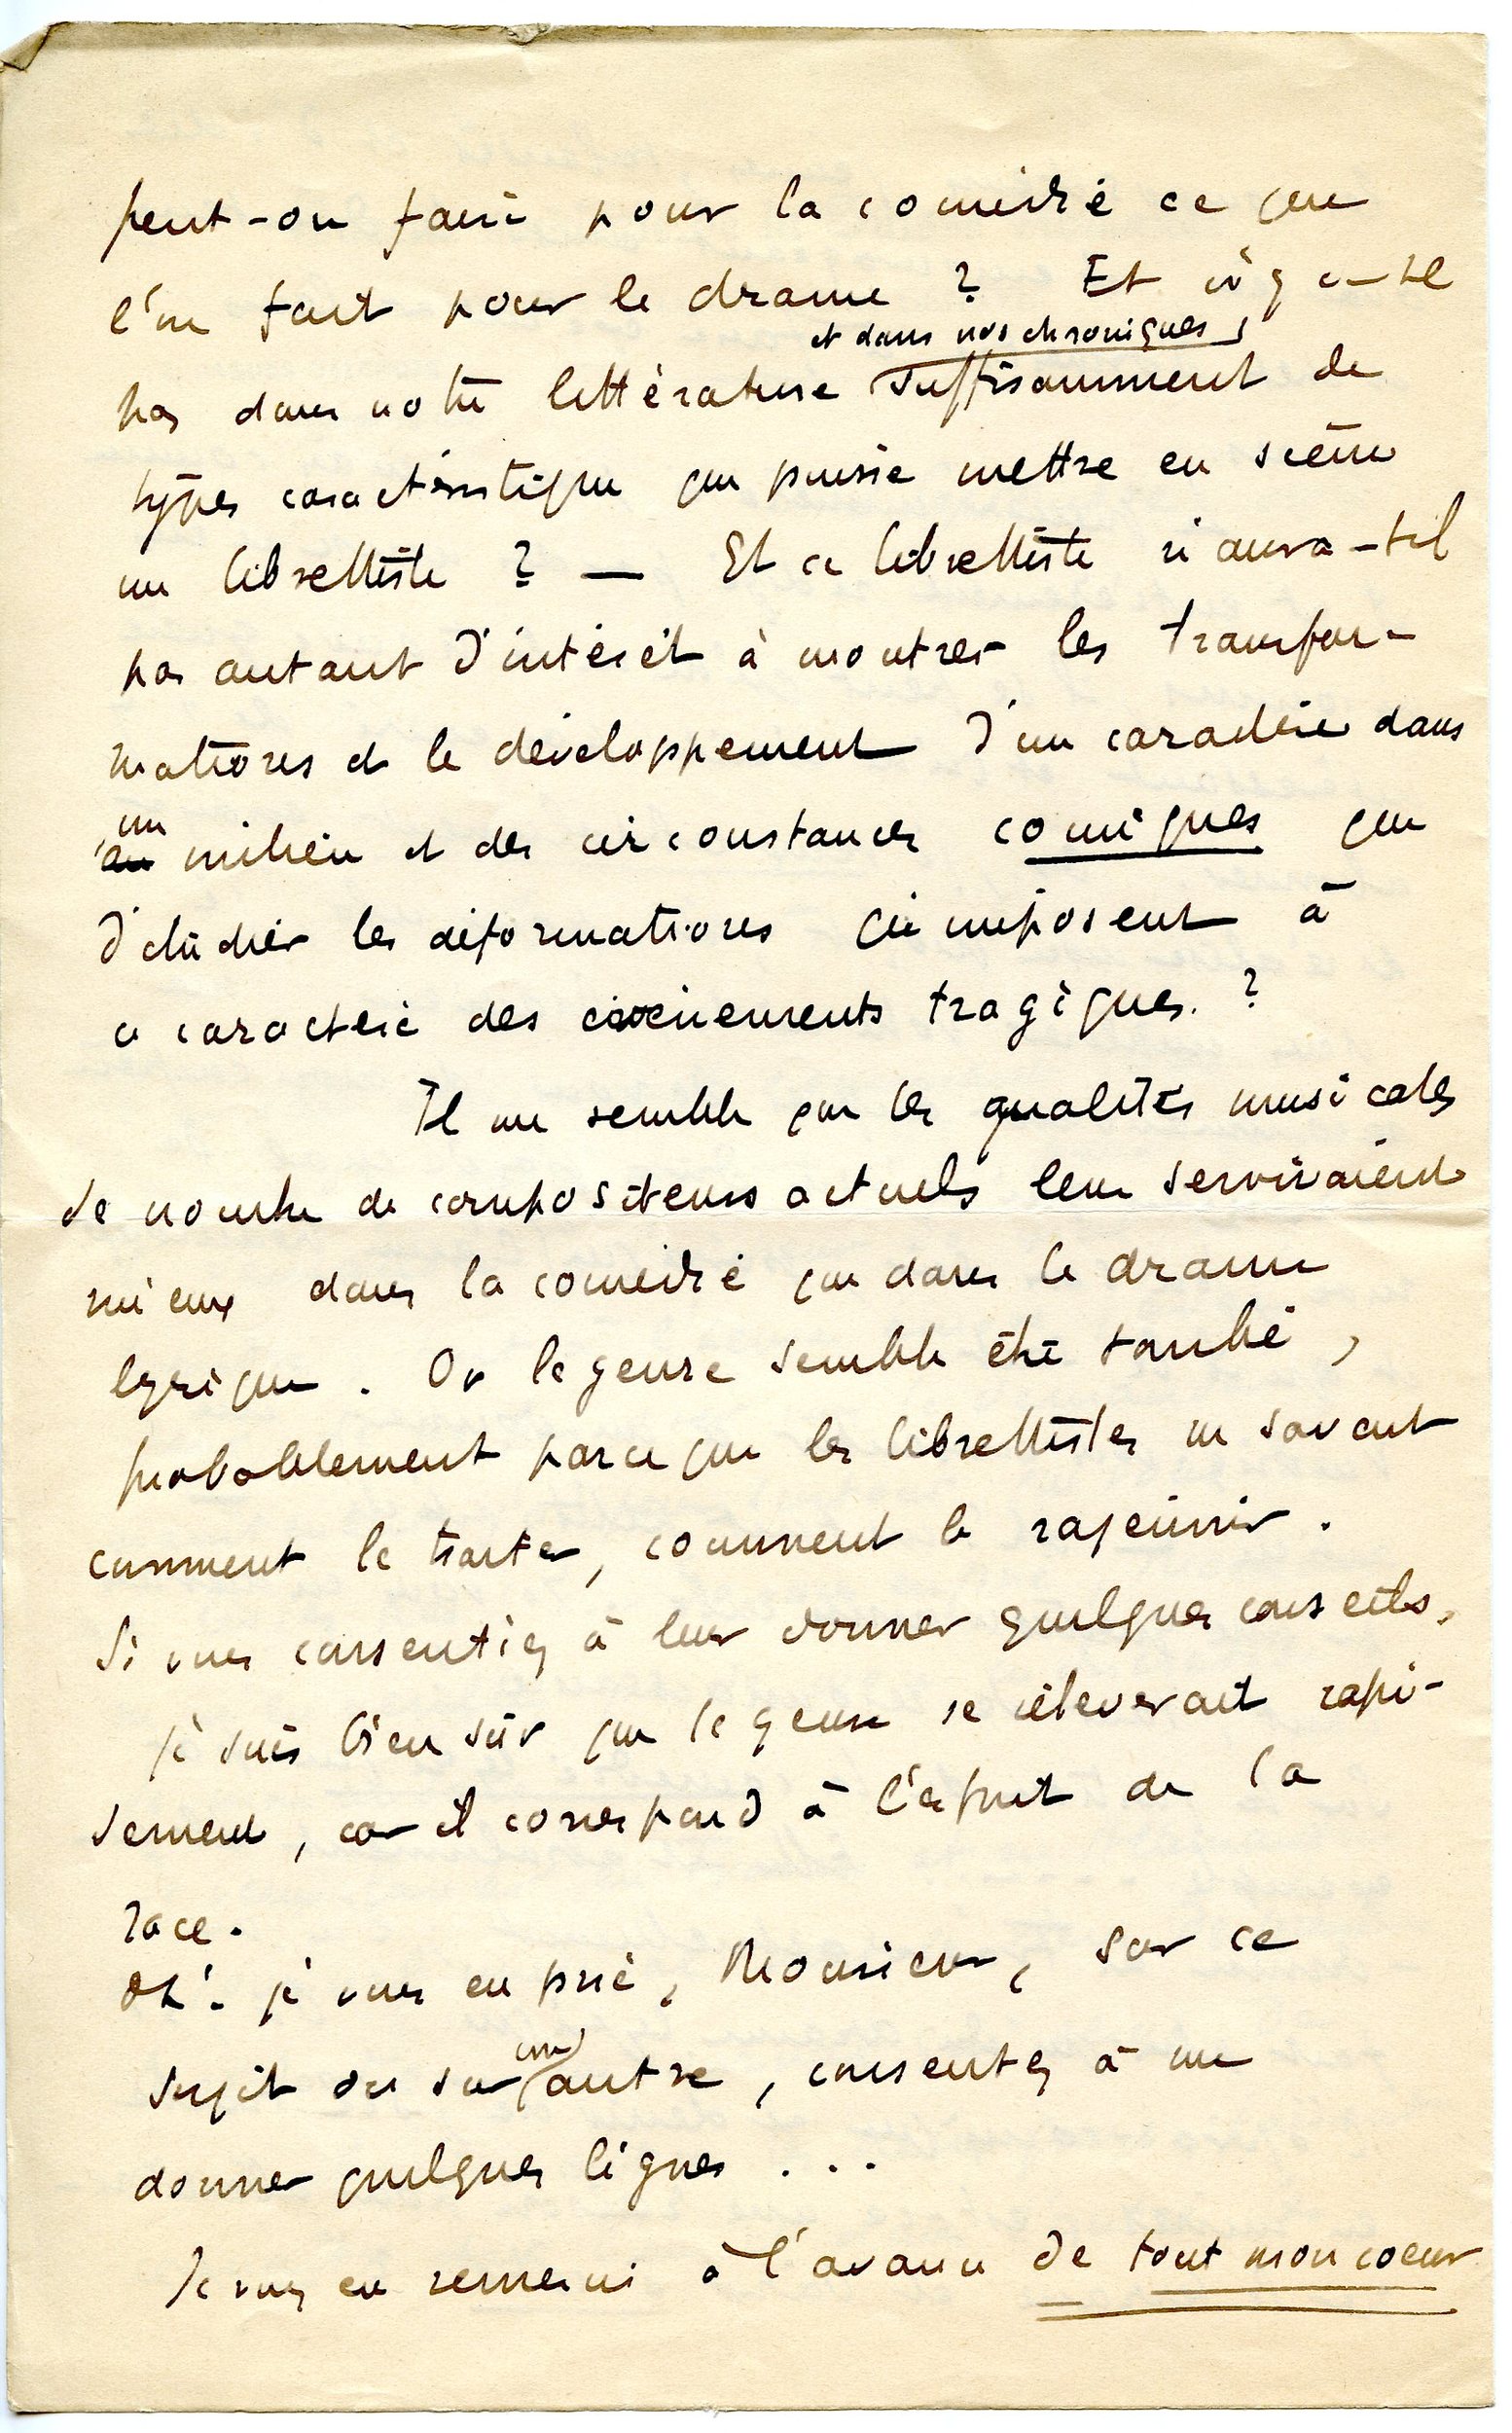 peut-on faire pour la comédie ce que
l'on fait pour le drame ? Et n'y a-t-il
et dans nos chroniques,
pas dans notre littérature suffisamment de
types caractéristiques que puisse mettre en scène
un librettiste ? — Et ce librettiste n'aura-t-il
pas autant d'intérêt à montrer les transfor-
mations et le développement d'un caractère dans
un
milieu et des circonstances comiques que
d'étudier les déformations qu'imposent à
ce caractère des évènements tragiques. ?
Il me semble que les qualités musicales
de nombre de compositeurs actuels leur serviraient
mieux dans la comédie que dans le drame
lyrique. Or le genre semble être tombé,
probablement parce que les librettistes ne savent
comment le traiter, comment le rajeunir.
Si vous consentiez à leur donner quelques conseils,
je suis bien sûr que le genre se relèverait rapi-
dement, car il correspond à l'esprit de la
race.
Oh! je vous en prie, Monsieur, sur ce
un
sujet ou sur autre, consentez à me
donner quelques lignes ...
Je vous en remercie à l'avance de tout mon coeur